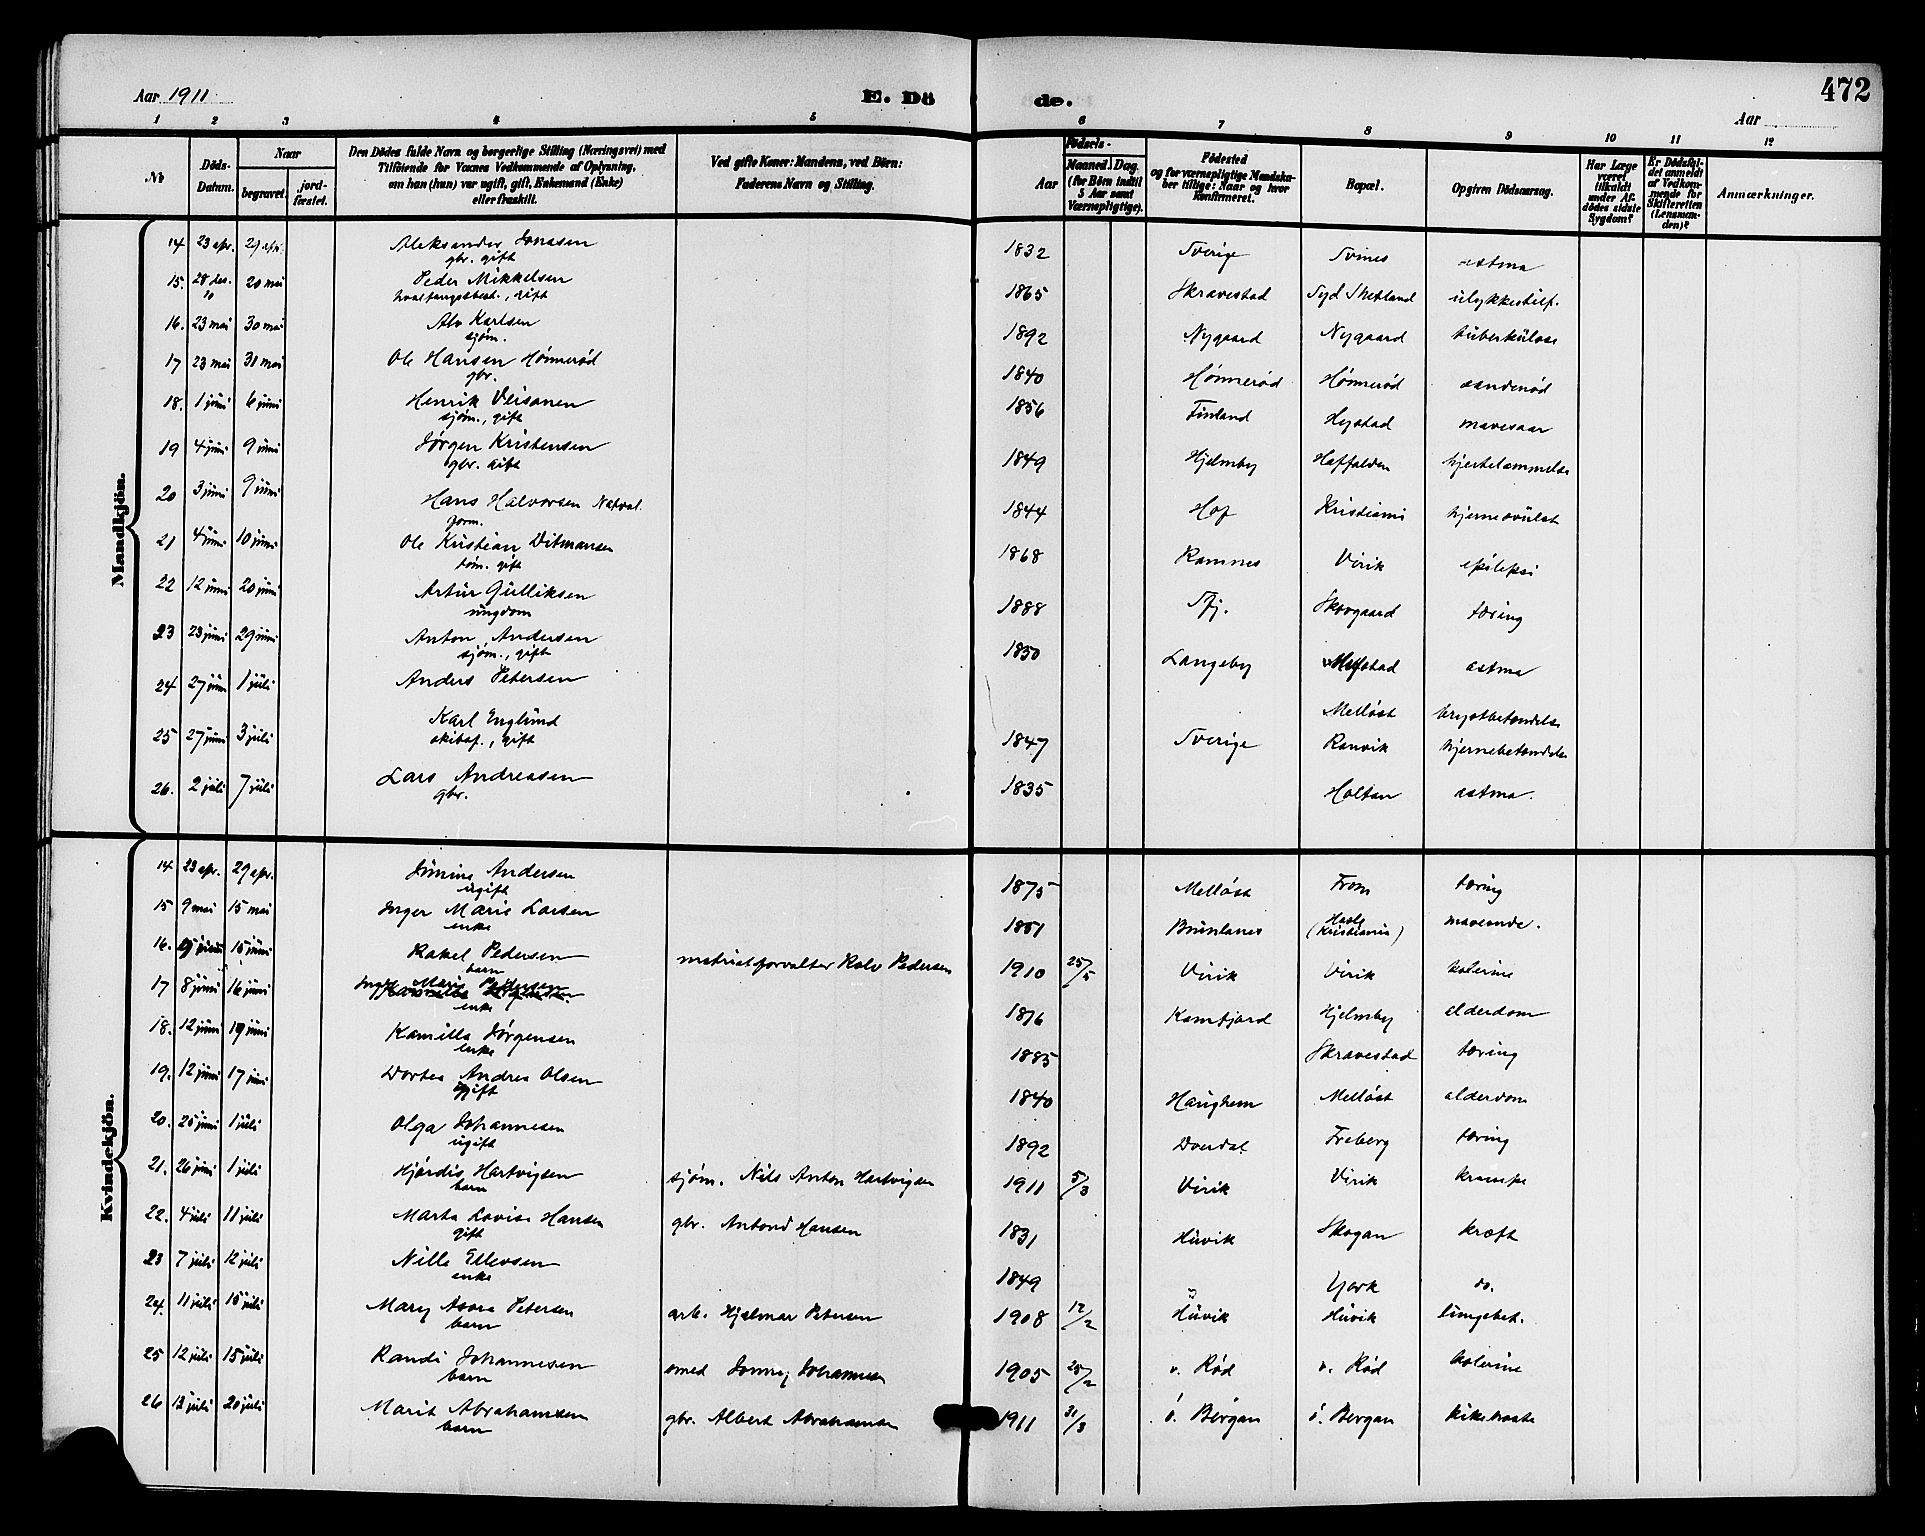 Aar 1911
E. Dö
de.
472
Aar
1 2 3 4 5 6 7 8 9 10 11 12
№
Döds-Datum.
Naar
begravet.
jord-fæstet.
Den Dödes fulde Navn og borgerlige Stilling (Næringsvei) med
Tilföiende for Voxnes Vedkommende af Oplysning,
om han (hun) var ugift, gift, Enkemand (Enke)
eller fraskilt.
Ved gifte Koner: Mandens, ved Börn:
Faderens Navn og Stilling.
Födsels-
Aar
Maaned. Dag.
(for Börn indtil
5 Aar samt
Værnepligtige).
Födested
og for værnepligtige Mandska-
ber tillige: Naar og hvor
konfirmeret.
Bopæl.
Opgiven Dödsaarsag.
Har Læge
været
tilkaldt
under Af-
dödes sidste
Sygdom?
Er Dödsfal-
det anmeldt
af Vedkom-
mende for
Skifteretten
(Lensman-
den)?
Anmærkninger.
Mandkjön.
14 23 apr. 29 apr. Aleksander Jonasen 1832 Sverige astma
gbr. gift
15. 28 des. 20 mai Peder Mikkelsen 1865 Skravestad Syd Shetland ulykkestilf.
10 hvalfangstbest., gift
16. 23 mai 30 mai Alv Karlsen 1892 Nygaard Nygaard tuberkulose
sjøm.
17 23 mai 31 mai Ole Hansen Hønnerød 1840 Hønnerød Hønnerød aandenød
gbr.
18. 1 juni 6 juni Henrik 1856 Finland Hystad mavesaar
sjøm., gift
19 4 juni 9 juni Jørgen Kristensen 1849 Hjelmby Haffalden hjertelammelse
gbr. gift
20 3 juni 9 juni Hans Halvorsen 1844 Hof Kristiania hjernesvulst
form.
21 4 juni 10 juni Ole Kristian Ditmansen 1868 Ramnes Virik epilepsi
tøm. gift
22 12 juni 20 juni Artur Gulliksen 1888 Sfj. Skovgaard tæring
ungdom
23 23 juni 29 juni Anton Andersen 1850 Langeby astma
sjøm., gift
24 27 juni 1 juli Anders Petersen Melløst brystbetændelse
25 27 juni 3 juli Karl Englund 1847 Sverige Ranvik hjernebetændelse
skibsf., gift
26. 2 juli 7 juli Lars Andreasen 1835 Holtan astma.
gbr.
Kvindekjön.
14 23 apr. 29 apr. Andersen 1875 Melløst Fram tæring
ugift
15 9 mai 15 mai Inger Marie Larsen 1851 Brunlanes Hasle mavesaar.
enke (Kristiania)
16. 15 juni Rakel Pedersen matrialforvalter Rolv Pedersen 1910 25/5 Virik Virik kolerine
barn
17 8 juni 16 juni Inger Marie Pedersen 1816 Hjelmby alderdom
enke
18. 12 juni 19 juni Kamilla Jørgensen 1885 Skravestad tæring
enke
19. 12 juni 17 juni Dortea Andrea Olsen 1840 Haughem Melløst alderdom
gift
20. 25 juni 1 juli Olga Johannesen 1892 Dverdal Freberg tæring
ugift
21. 26 juni 1 juli Hjørdis Hartvigsen sjøm. Nils Anton Hartvigsen 1911 5/3 Virik Virik krampe
barn
22. 4 juli 11 juli Marta Lovise Hansen gbr. Hansen 1831 Huvik Skogan kræft
gift
23 7 juli 12 juli Nille Ellevsen 1849 York do.
enke
24. 11 juli 15 juli Mary Petersen arb. Hjalmar Petersen 1908 12/2 Huvik Huvik lungebet.
barn
25 12 juli 15 juli Randi Johannesen smed Johannesen 1905 25/2 v. Rød v. Rød kolerine
barn
26 13 juli 20 juli Marit Abrahamsen gbr. Albert Abrahamsen 1911 31/3 ö. Bergan ö. Bergan kikhoste
barn